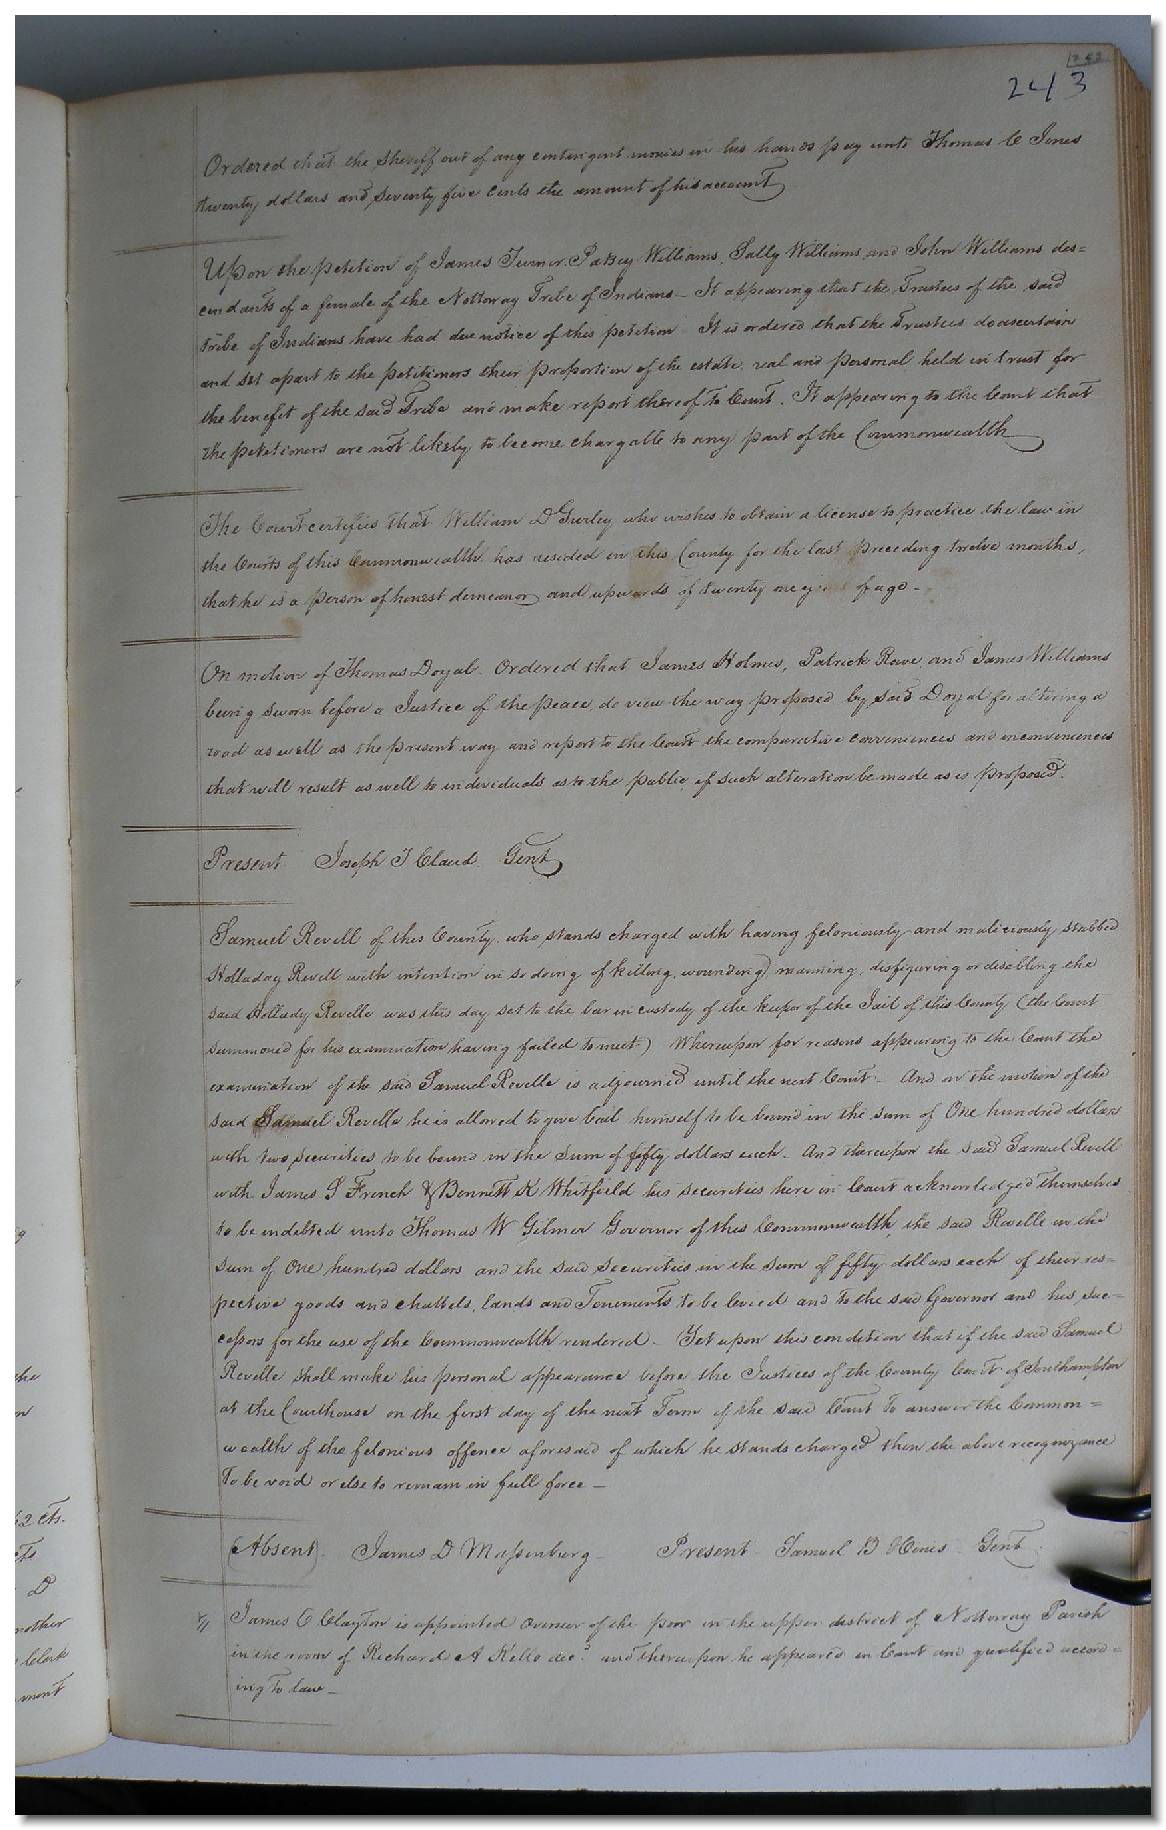 243
Ordered that the Sheriff out of any contingent monies in his hands pay unto Thomas C Jones
twenty dollars and seventy five cents the amount of his account
Upon the petition of James Turner, Patsey Williams, Sally Williams, and John Williams des=
cendants of a female of the Nottoway Tribe of Indians - It appearing that the Trustees of the said
Tribe of Indians have had due notice of this petition - It is ordered that the Trustees do ascertain
and set apart to the petitioners their proportion of the estate, real and personal held in trust for
the benefit of the said Tribe and make report thereof to Court. It appearing to the Court that
the petitioners are not likely to become chargable to any part of the Commonwealth
The Court certifies that William D Gurley, who wishes to obtain a license to practice the law in
the Courts of this Commonwealth has resided in this County for the last preceding twelve months,
that he is a person of honest demeanor and upwards of twenty one of age -
On motion of Thomas Doyal Ordered that James Holmes, Patrick Rowe, and James Williams
being sworn before a Justice of the peace, do view the way proposed by said Doyal for altering a
road as well as the present way and report to the Court the comparative conveniences and inconveniences
that will result as well to individuals as to the public, if such alteration be made as is proposed.
Present Joseph T Claud Gent
Samuel Revell of this County, who stands charged with having feloniously and maliciously stabbed
Holladay Revell with intention in so doing of killing, wounding, maiming, disfiguring or disabling the
said Hollady Revelle was this day set to the bar in custody of the keeper of the Jail of this County (the Court
summoned for his examination having failed to meet-) Whereupon for reasons appearing to the Court the
examination of the said Samuel Revelle is adjourned until the next Court - And on the motion of the
said Samuel Revelle he is allowed to give bail himself to be bound in the sum of One hundred dollars
with two securities to be bound in the sum of fifty dollars each - And thereupon the said Samuel Revell
with James S French & Bennett K Whitfield his securities here in Court acknowledged themselves
to be indebted unto Thomas W Gilmer Governor of this Commonwealth, the said Revelle in the
sum of One hundred dollars and the said securities in the sum of fifty dollars each of their res=
pective goods and chattels, lands and Tenements to be levied and to the said Governor and his suc=
cessors for the use of the Commonwealth rendered - Yet upon this condition that if the said Samuel
Revelle shall make his personal appearance before the Justices of the County Court of Southampton
at the Courthouse on the first day of the next Term of the said Court to answer the Common=
wealth of the felonious offence aforesaid of which he stands charged then the above recognizance
To be void or else to remain in full force -
(Absent) James D Massenburg - Present - Samuel B Hines Gent
James C Clayton is appointed Overseer of the poor in the upper district of Nottoway Parish
in the room of Richard A Kello decd and thereupon he appeared in Court and qualified accord=
ing to law -